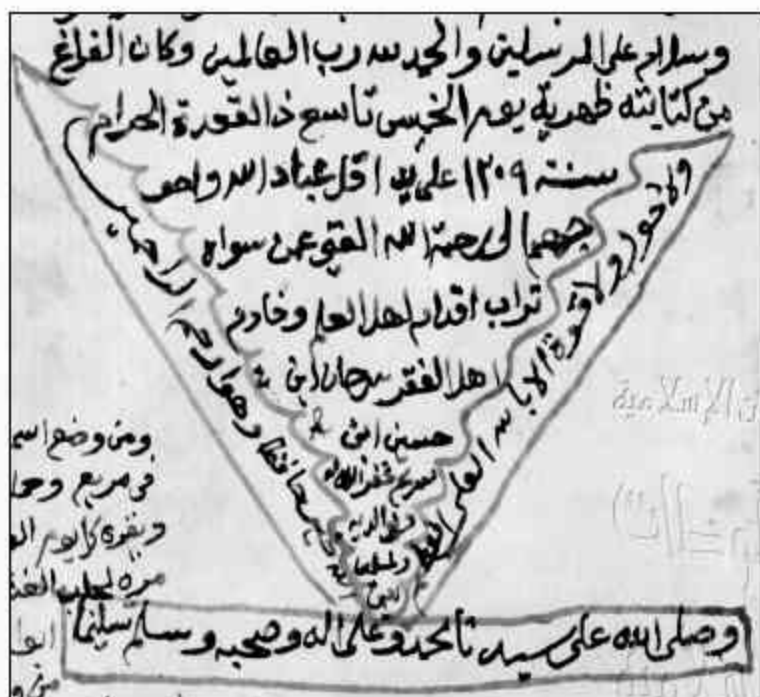 وسلام على المرسلين والحمد لله رب العالمين وكان الفراغ
من كتابته ظهرية يوم الخميس تاسع ذا القعدة الحرام
سنة ١٢٠٩ على يد اقل عباد الله واحو
جهم الى رحمة الله الغني عمن سواه
تراب اقدام اهل العلم وخادم
اهل الفقر سرحان ابن
حسين ابن
غفر الله له
ولوالديه
ولا حول ولا قوة الا بالله العلي العظيم
خير حافظا وهو ارحم الراحمين
وصلى الله على سيدنا محمد وعلى اله وصحبه وسلم تسليما
ومن وضع
في مربع
مرة لجلب